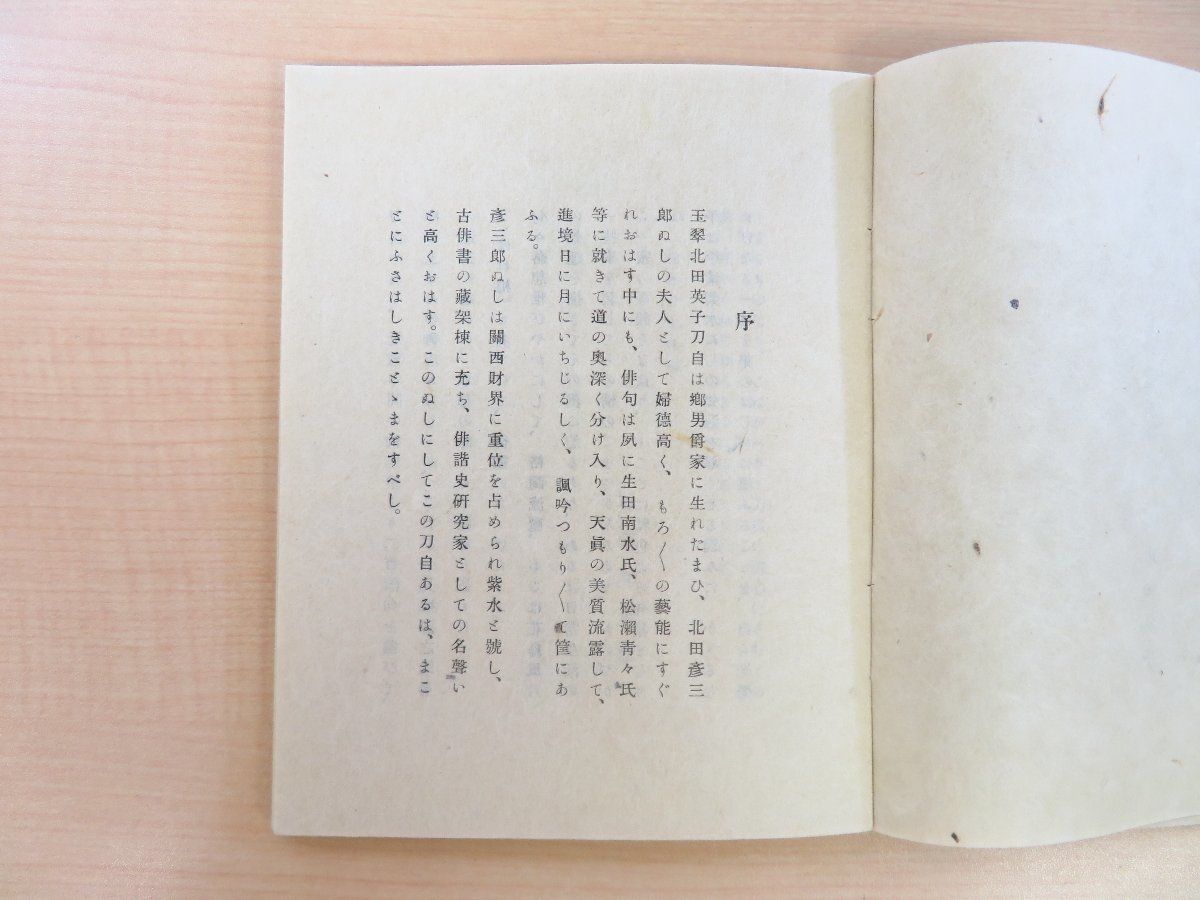 序
玉翠北田英子刀自は鄕男爵家に生れたまひ、北田彥三
郎ぬしの夫人として婦德高く、もろ〳〵の藝能にすぐ
れおはす中にも、俳句は夙に生田南水氏、松瀨靑々氏
等に就きて道の奧深く分け入り、天眞の美質流露して、
進境日に月にいちじるしく、諷吟つもり〳〵て筐にあ
ふる。
彥三郎ぬしは關西財界に重位を占められ紫水と號し、
古俳書の藏架棟に充ち、俳諧史硏究家としての名聲い
と高くおはす。このぬしにしてこの刀自あるは、まこ
とにふさはしきことゝまをすべし。